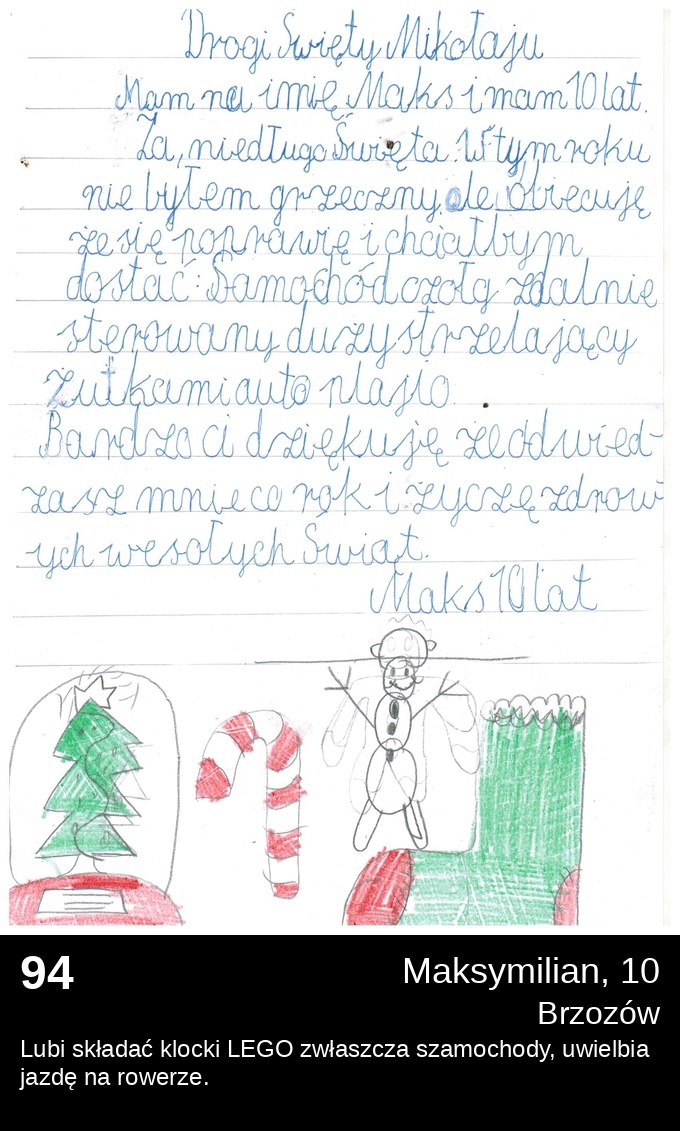 Drogi Święty Mikołaju
Mam na imię Maks i mam 10 lat.
Za, niedługo Święta. W tym roku
nie byłem grzeczny ale obiecuję
że się poprawię i chciałbym
dostać: Samochód czołg zdalnie
sterowany duży strzelający
z kami auto
Bardzo ci dziękuję że odwied-
zasz mnie co rok i życzę zdrow
ych wesołych Świąt.
Maks 10 lat
94
Maksymilian, 10
Brzozów
Lubi składać klocki LEGO zwłaszcza szamochody, uwielbia
jazdę na rowerze.